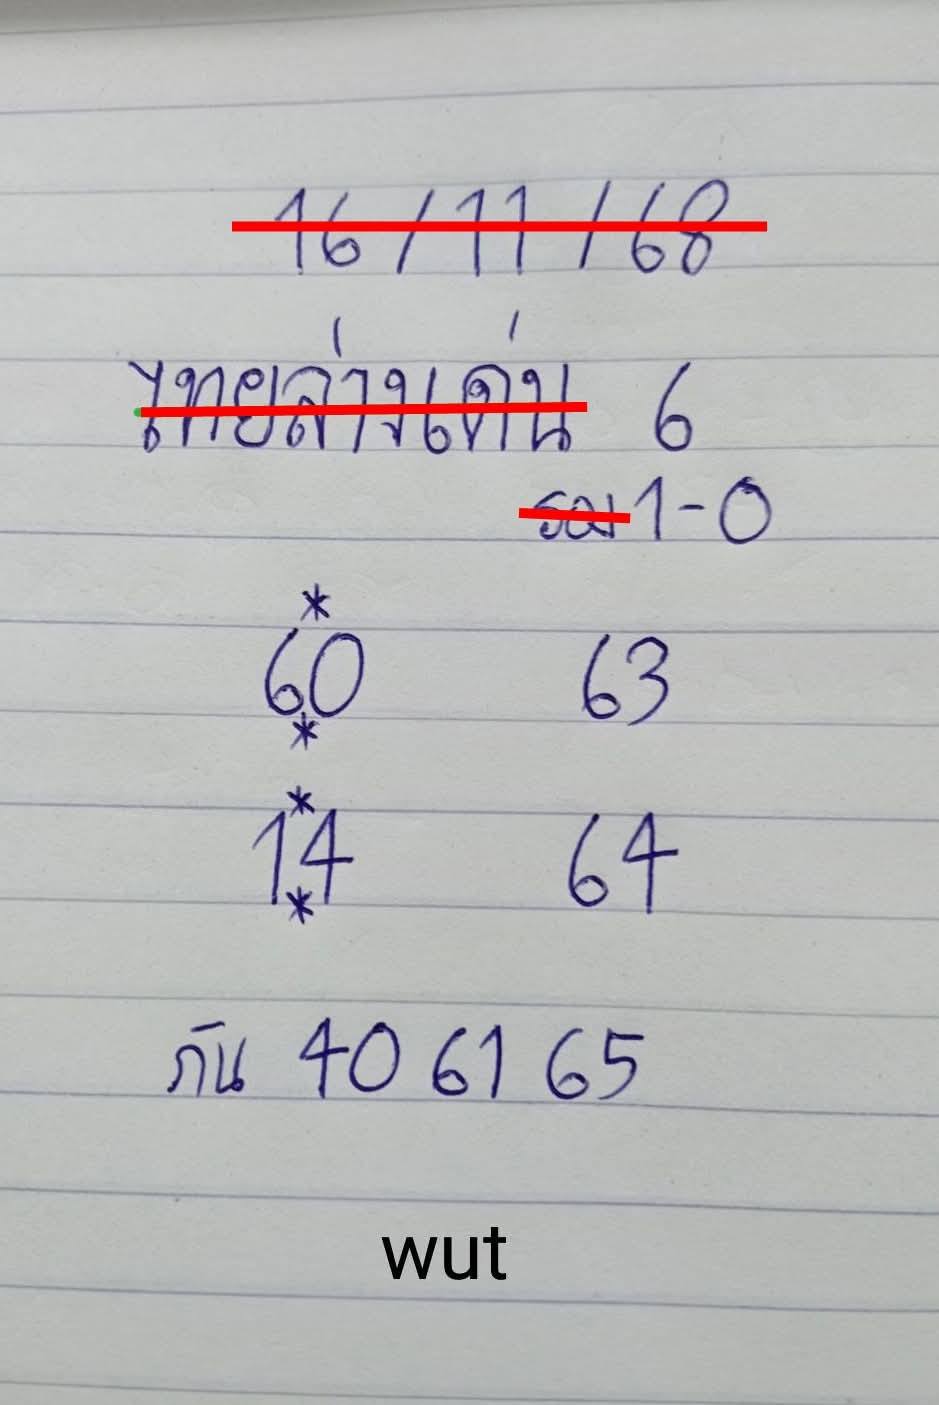 16/11/68
ไทยล่างเด่น 6
รอง 1-0
*
60 63
*
*
14 64
*
กัน 40 61 65
wut